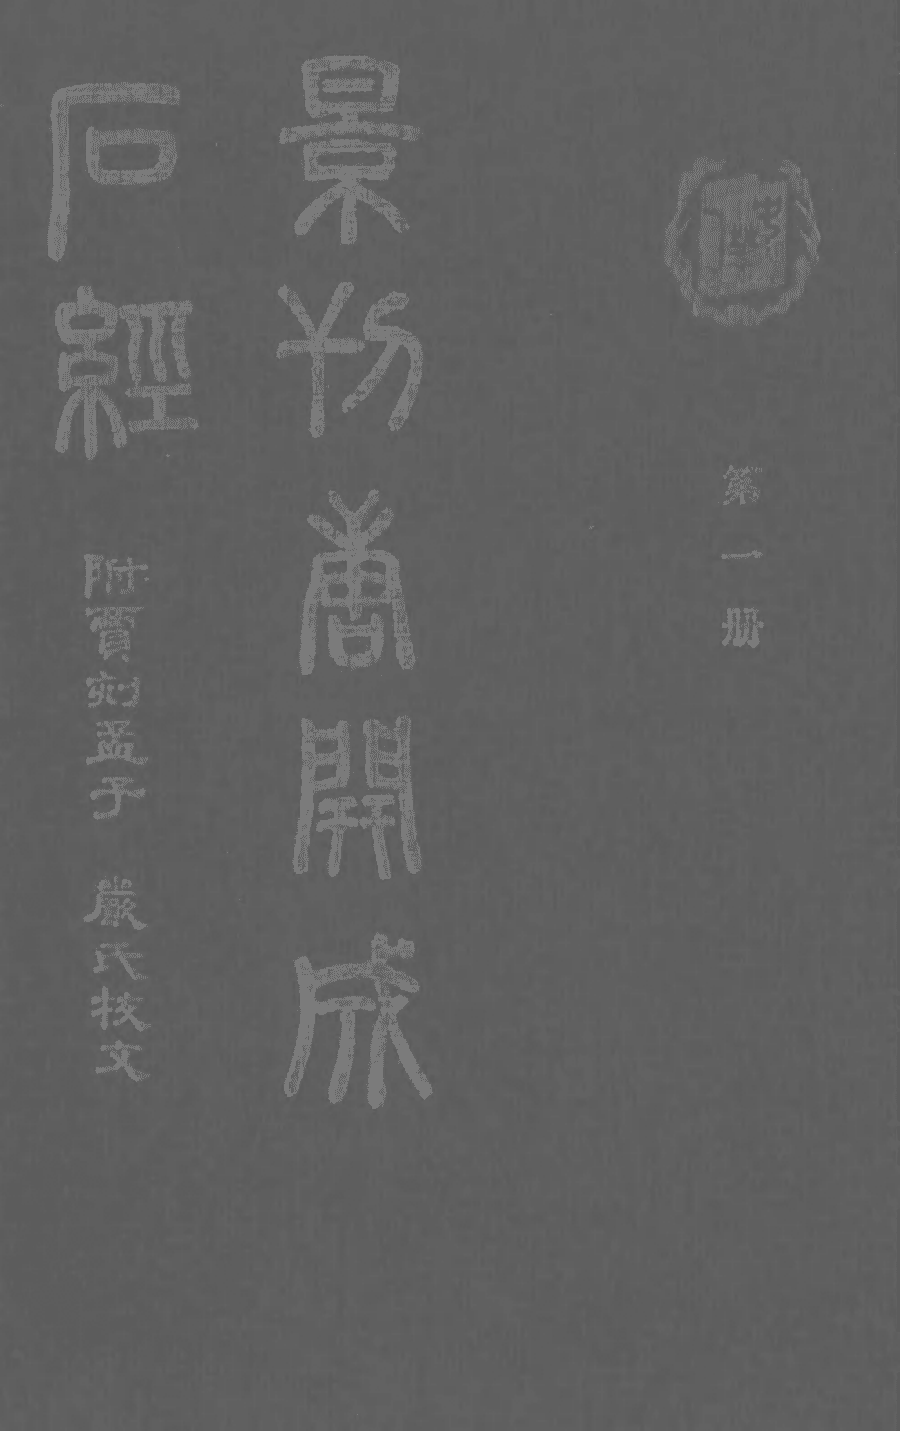 第一册
景刊唐開成
石經
附賈刻孟子 嚴氏校文